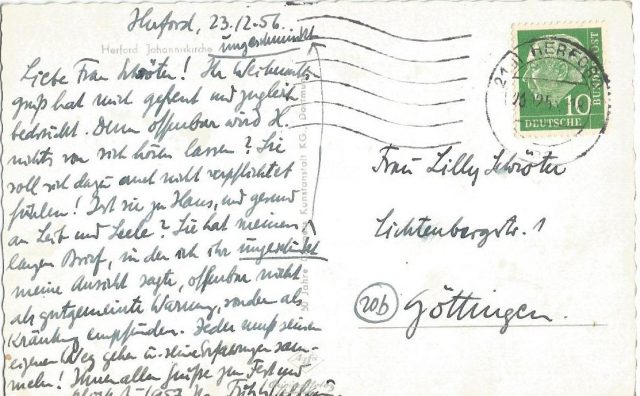 Herford, 23.12.56.
Herford Johanniskirche
ungeschminkt
Liebe Frau Schröter! Ihr Weihnachts-
gruß hat mich gefreut und zugleich
bedrückt. Denn offenbar wird H.
nichts von sich hören lassen? Sie
soll sich dazu auch nicht verpflichtet
fühlen! Ist sie zu Haus, und gesund
an Leib und Seele? Sie hat meinen
langen Brief, in den ich ihr ungeschickt
meine Ansicht sagte, offenbar nicht
als gutgemeinte Warnung, sondern als
Kränkung empfunden. Jeder muß seinen
eigenen Weg gehen u. seine Erfahrungen sam-
meln! Ihnen allen Grüße zum Fest und
1957
Kunstanstalt KG., Dortmund
50 Jahre
HERFORD
10
DEUTSCHE
BUNDESPOST
Frau Lilly Schröter
Lichtenbergstr. 1
20b
Göttingen.